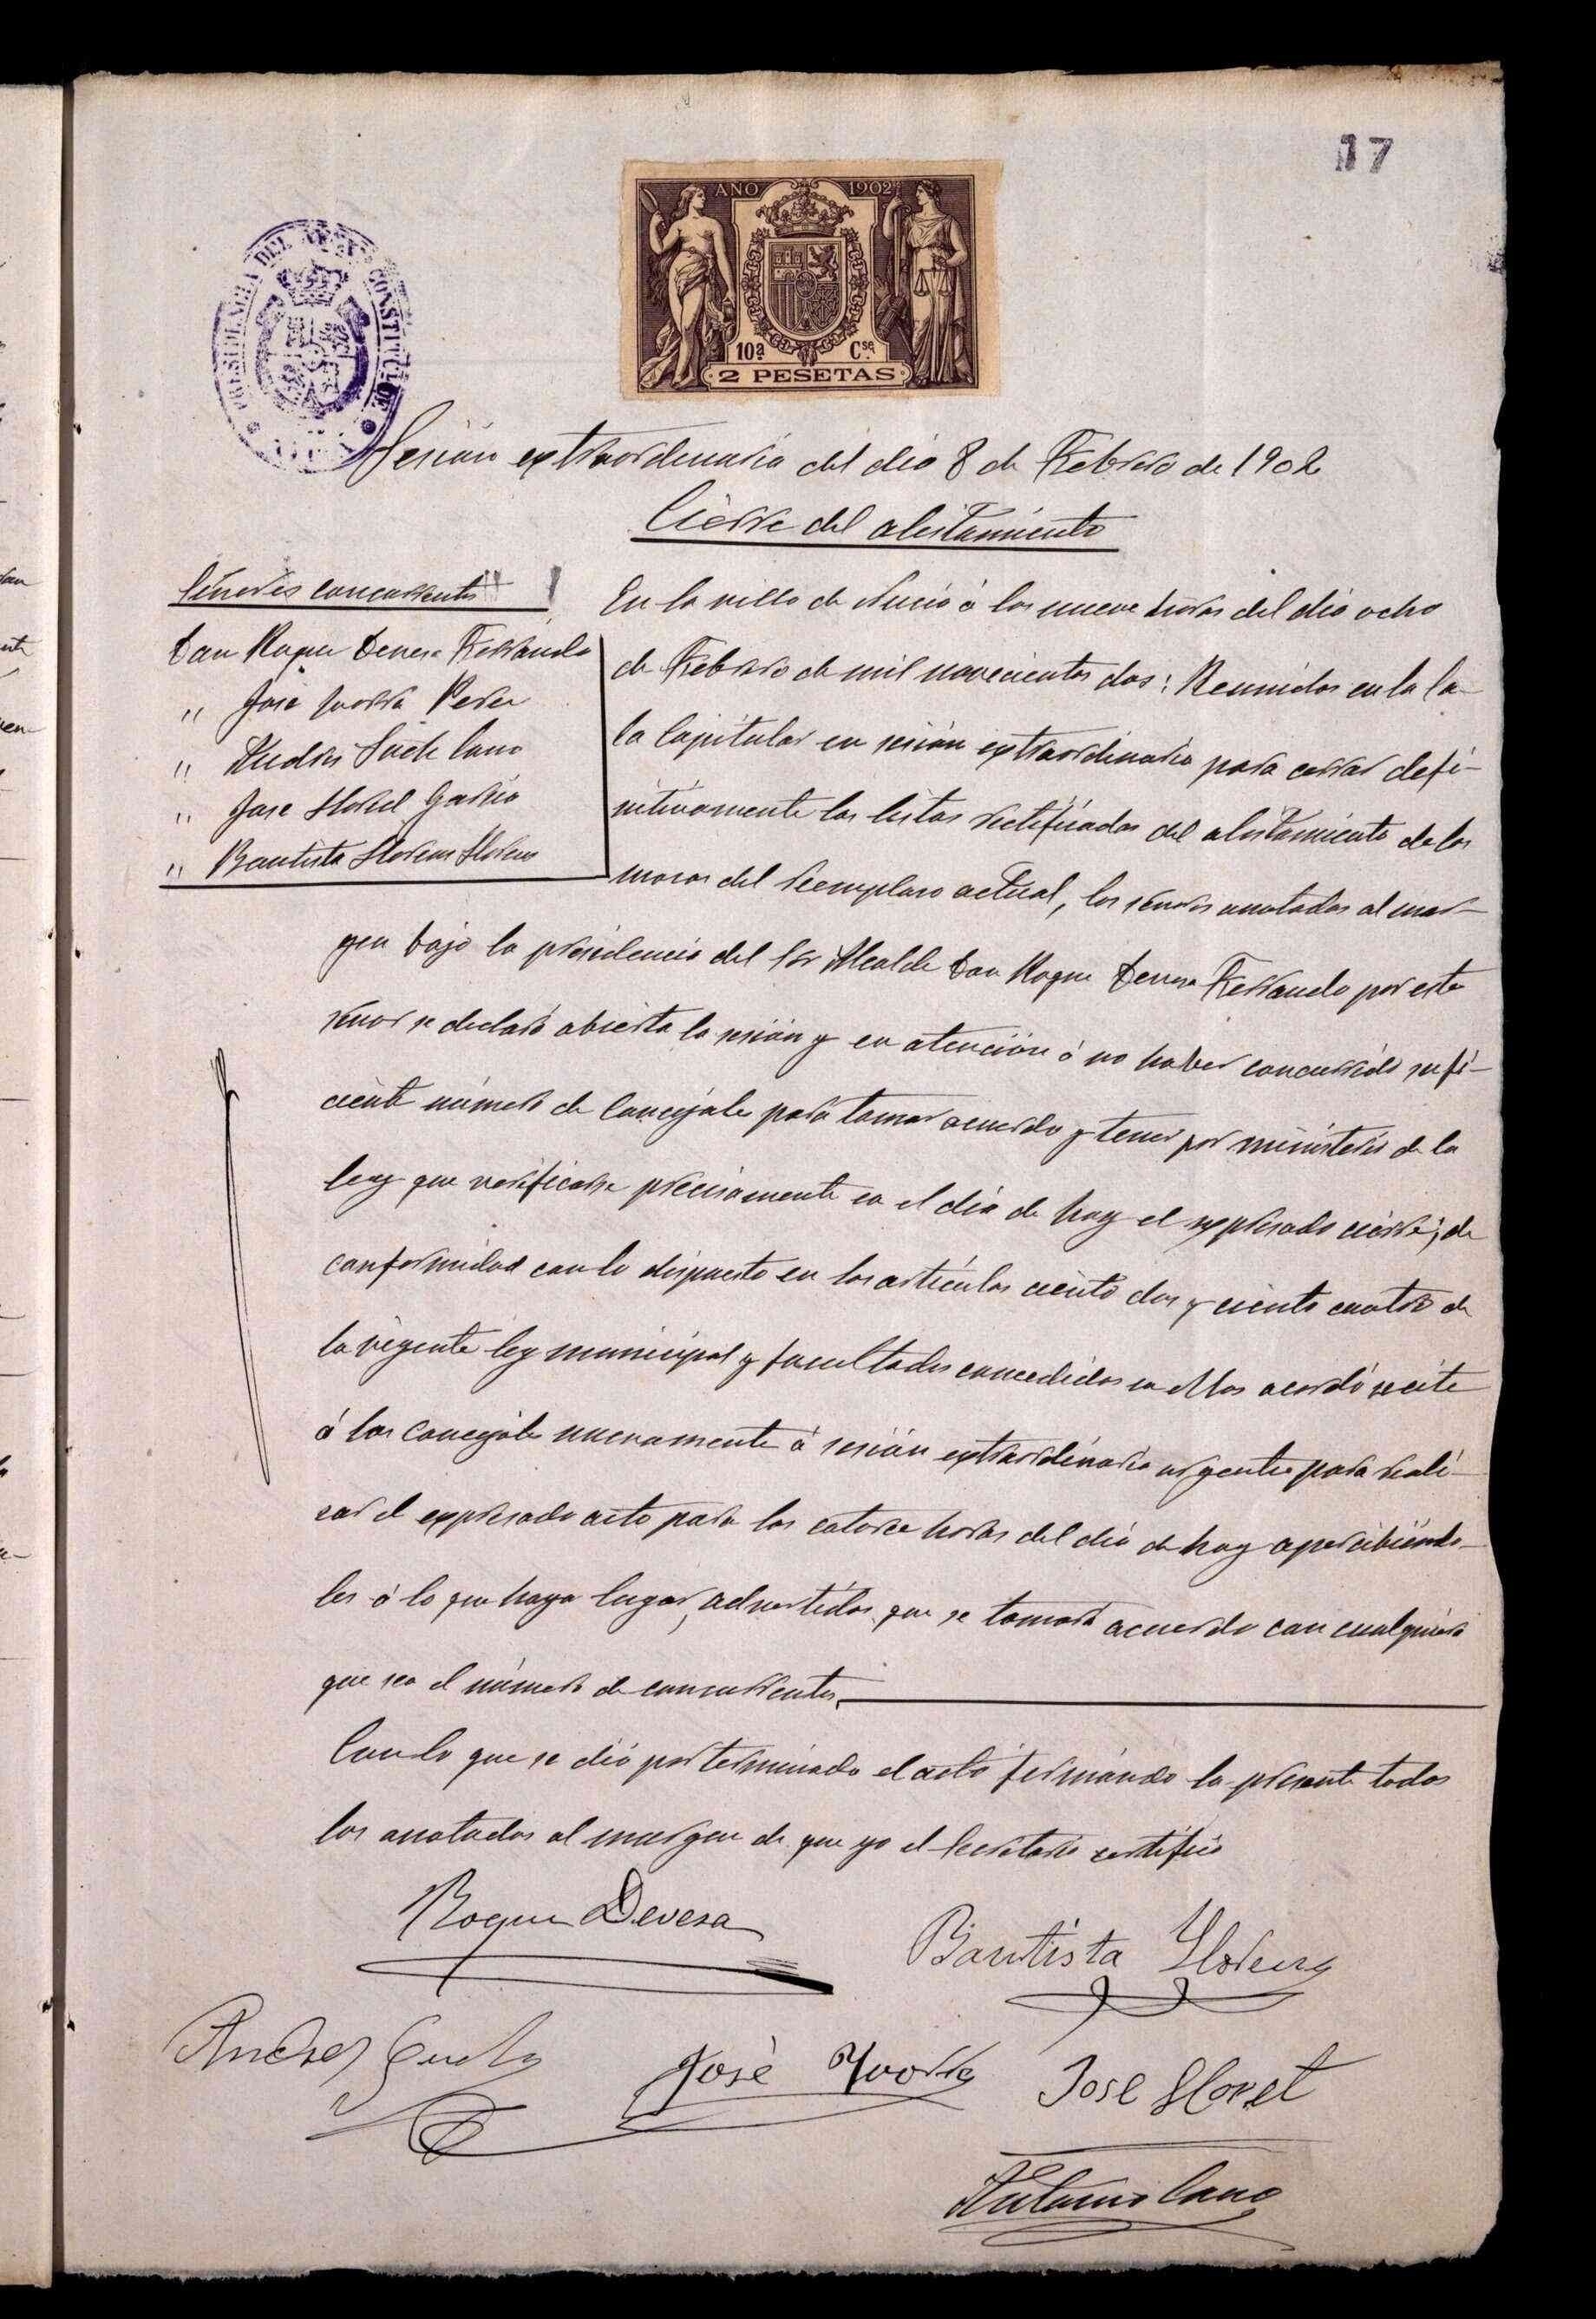 17
AÑO 1902
10ª Cse
2 PESETAS
PRESIDENCIA DEL CONSTITUC DE
Sesión extraordinaria del dia 8 de Febrero de 1902
Cierre del alistamiento
Señores concurrentes
Don Roque Devesa Ferrando
" José Yvorra Perez
" Andrés Cano
" Jose Lloret Garcia
" Bautista Llorens Llorens
En la villa de Nucia á las nueve horas del dia ocho
de Febrero de mil novecientos dos: Reunidos en la Sa-
la Capitular en sesión extraordinaria para cerrar defi-
nitivamente las listas rectificadas del alistamiento de los
mozos del reemplazo actual, los señores anotados al mar-
gen bajo la presidencia del Sor Alcalde Don Roque Devesa Ferrando por este
señor se declaró abierta la sesión y en atención á no haber concurrido sufi-
ciente número de Concejales para tomar acuerdo y tener por ministerio de la
ley que verificarse precisamente en el dia de hoy el expresado cierre; de
conformidad con lo dispuesto en los artículos ciento dos y ciento cuatro de
la vigente ley municipal y facultades concedidas en ellos acordó se cite
á los Concejales nuevamente á sesión extraordinaria urgente para reali-
zar el expresado acto para las catorce horas del dia de hoy apercibiendo-
les á lo que haya lugar, advertidos que se tomará acuerdo con cualquiera
que sea el número de concurrentes.
Con lo que se dió por terminado el acto firmando la presente todos
los anotados al margen de que yo el Secretario certifico
Roque Devesa
Bautista Llorens
Andres
José Yvorra
Jose Lloret
Antonio Cano